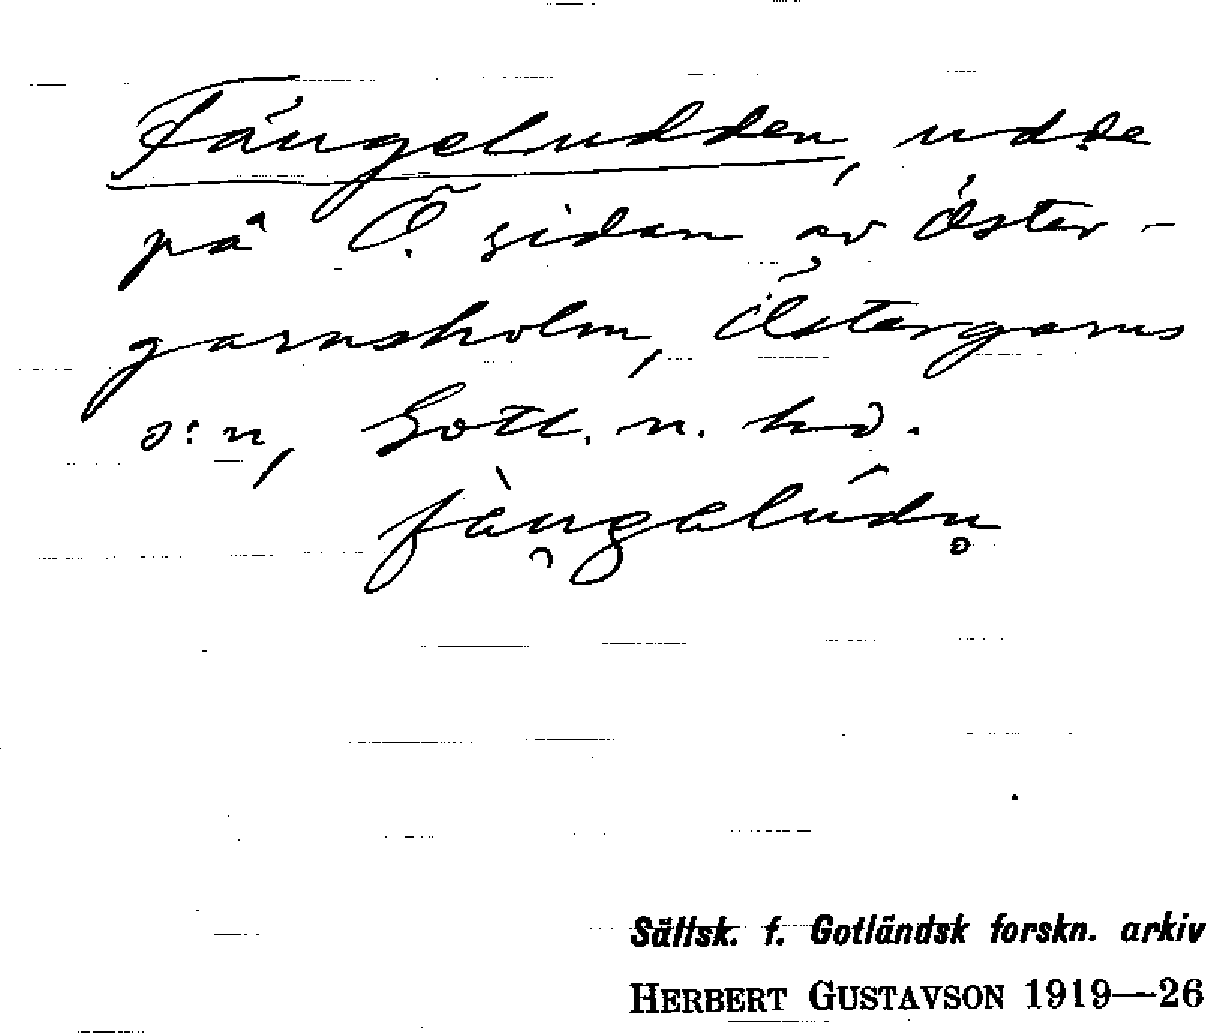 Fängeludden, udde
på Ö. sidan av Öster-
garnsholm, Östergarns
s:n, Gotl. n. hd.
fàngalúdn
Sällsk. f. Gotländsk forskn. arkiv
HERBERT GUSTAVSON 1919—26